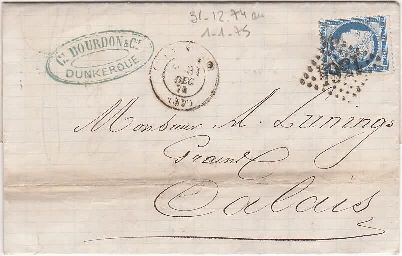 31-12-74 au
1-1-75
Cs. BOURDON & Cie.
DUNKERQUE
31
DEC
74
Monsieur A. Lunings
Calais